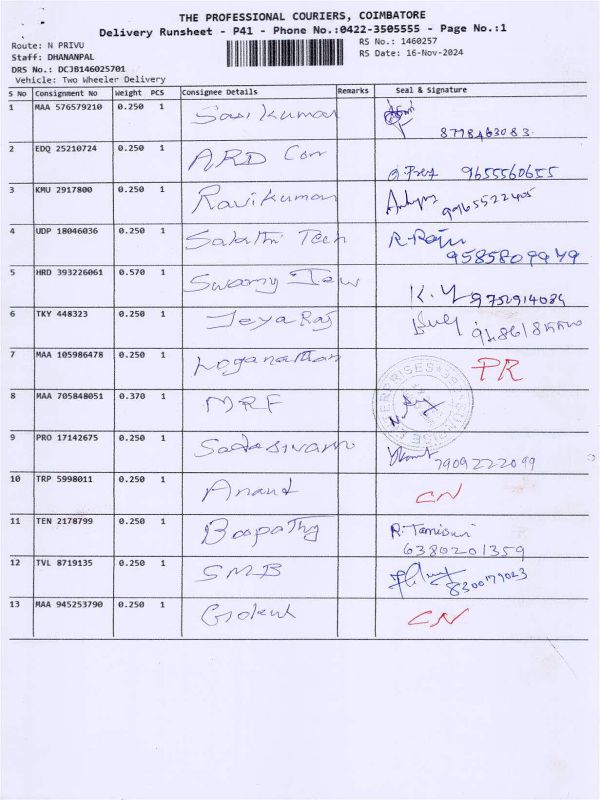 THE PROFESSIONAL COURIERS, COIMBATORE
Delivery Runsheet - P41 - Phone No.:0422-3505555 - Page No.:1
Route: N PRIVU
RS No.: 1460257
Staff: DHANANPAL
RS Date: 16-Nov-2024
DRS No.: DCJB146025701
Vehicle: Two Wheeler Delivery
S No Consignment No Weight PCS Consignee Details Remarks Seal & Signature
1 MAA 576579210 0.250 1 Sasikumar
8778463083
2 EDQ 25210724 0.250 1 ARD Con
9655560655
3 KMU 2917800 0.250 1 Ravikumar
9965522405
4 UDP 18046036 0.250 1 Sakthi Tech R. Raju
9585809949
5 HRD 393226061 0.570 1 Swamy Jew
K. 9752914084
6 TKY 448323 0.250 1 JeyaRaj
7 MAA 105986478 0.250 1 Loganathan PR
8 MAA 705848051 0.370 1 MRF
9 PRO 17142675 0.250 1 Sadasivam
7909222099
10 TRP 5998011 0.250 1 Anand CN
11 TEN 2178799 0.250 1 Boopathy R. Tamilsui
6380201359
12 TVL 8719135 0.250 1 SMB
8300177023
13 MAA 945253790 0.250 1 Gokul CN